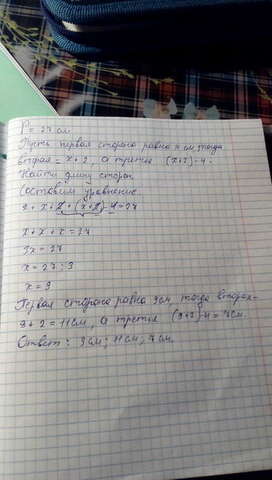 P = 27 см
Пусть первая сторона равна x см, тогда
вторая = x + 2, а третья (x+2)-4.
Найти длину сторон.
Составим уравнение
x + x + 2 + (x+2) - 4 = 27
x + x + x = 27
3x = 27
x = 27 : 3
x = 9
Первая сторона равна 9см, тогда вторая -
9 + 2 = 11см, а третья (9+2)-4 = 7см.
Ответ: 9см; 11см; 7см.